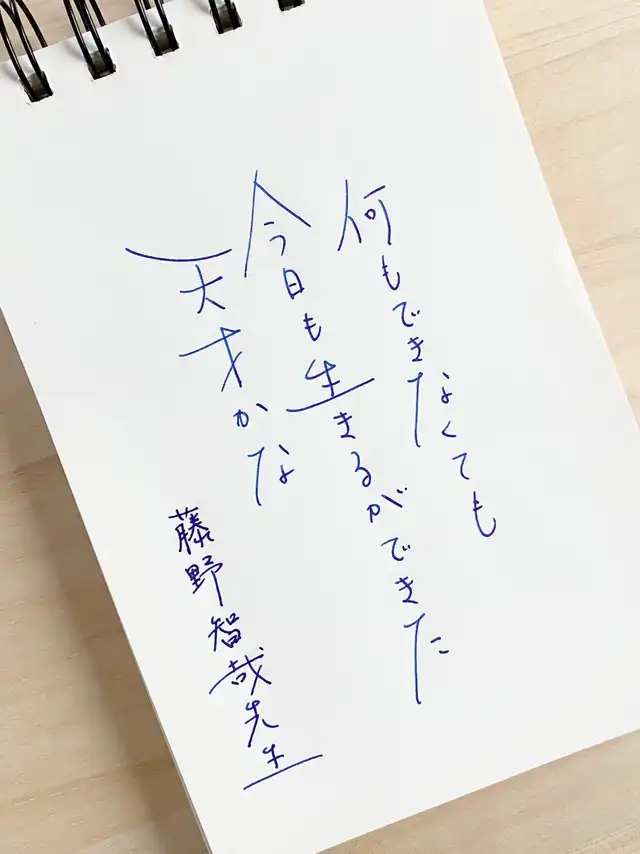 何もできなくても
今日も生きるができた
天才かな
藤野智哉先生